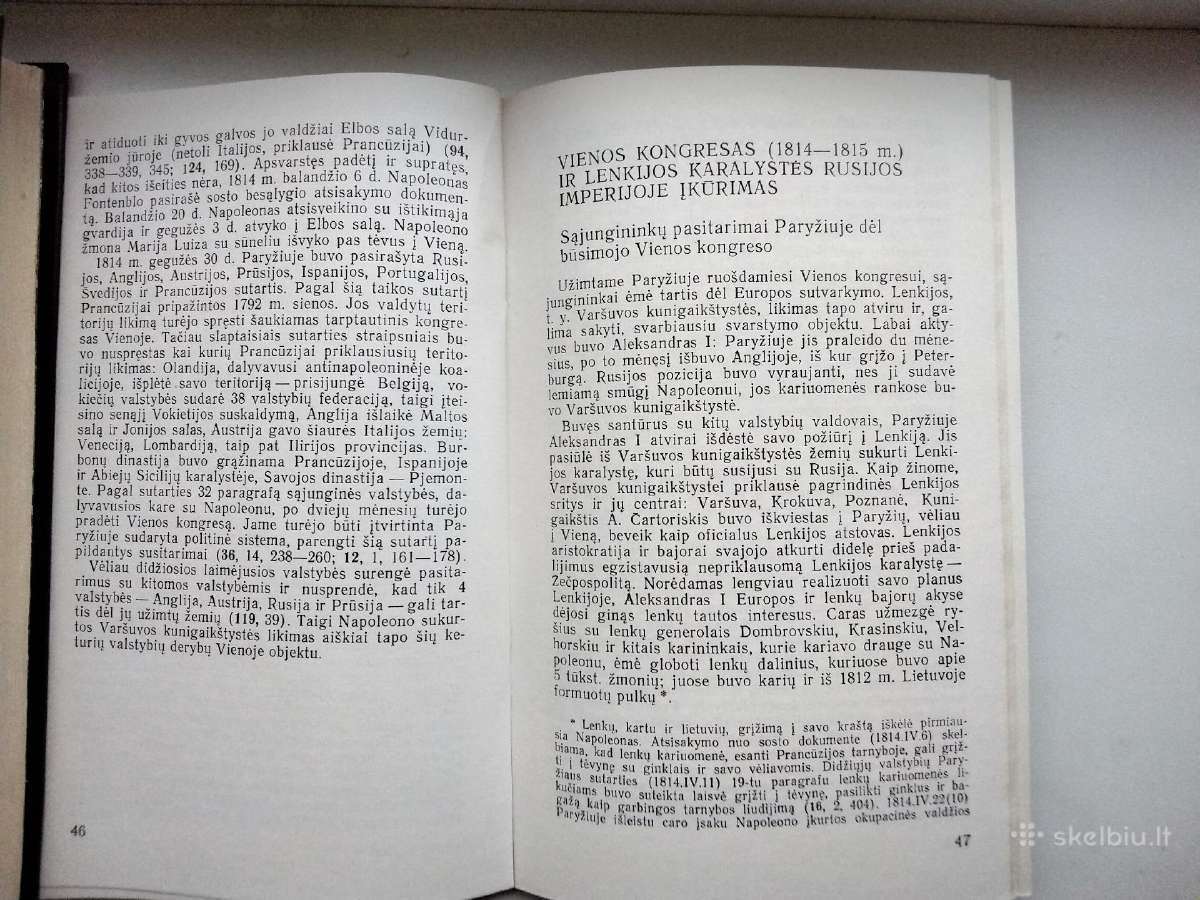 ir atiduoti iki gyvos galvos jo valdžiai Elbos salą Vidur-
žemio jūroje (netoli Italijos, priklausė Prancūzijai) (94,
338—339, 345; 124, 169). Apsvarstęs padėtį ir supratęs,
kad kitos išeities nėra, 1814 m. balandžio 6 d. Napoleonas
Fontenblo pasirašė sosto besąlygio atsisakymo dokumen-
tą. Balandžio 20 d. Napoleonas atsisveikino su ištikimąja
gvardija ir gegužės 3 d. atvyko į Elbos salą. Napoleono
žmona Marija Luiza su sūneliu išvyko pas tėvus į Vieną.
1814 m. gegužės 30 d. Paryžiuje buvo pasirašyta Rusi-
jos, Anglijos, Austrijos, Prūsijos, Ispanijos, Portugalijos,
Švedijos ir Prancūzijos sutartis. Pagal šią taikos sutartį
Prancūzijai pripažintos 1792 m. sienos. Jos valdytų teri-
torijų likimą turėjo spręsti šaukiamas tarptautinis kongre-
sas Vienoje. Tačiau slaptaisiais sutarties straipsniais bu-
vo nuspręstas kai kurių Prancūzijai priklausiusių terito-
rijų likimas: Olandija, dalyvavusi antinapoleoninėje koa-
licijoje, išplėtė savo teritoriją — prisijungė Belgiją, vo-
kiečių valstybės sudarė 38 valstybių federaciją, taigi įtei-
sino senąjį Vokietijos suskaldymą, Anglija išlaikė Maltos
salą ir Jonijos salas, Austrija gavo šiaurės Italijos žemių:
Veneciją, Lombardiją, taip pat Ilirijos provincijas. Bur-
bonų dinastija buvo grąžinama Prancūzijoje, Ispanijoje
ir Abiejų Sicilijų karalystėje, Savojos dinastija — Pjemon-
te. Pagal sutarties 32 paragrafą sąjunginės valstybės, da-
lyvavusios kare su Napoleonu, po dviejų mėnesių turėjo
pradėti Vienos kongresą. Jame turėjo būti įtvirtinta Pa-
ryžiuje sudaryta politinė sistema, parengti šią sutartį pa-
pildantys susitarimai (36, 14, 238—260; 12, 1, 161—178).
Vėliau didžiosios laimėjusios valstybės surengė pasita-
rimus su kitomis valstybėmis ir nusprendė, kad tik 4
valstybės — Anglija, Austrija, Rusija ir Prūsija — gali tar-
tis dėl jų užimtų žemių (119, 39). Taigi Napoleono sukur-
tos Varšuvos kunigaikštystės likimas aiškiai tapo šių ke-
turių valstybių derybų Vienoje objektu.
46
VIENOS KONGRESAS (1814—1815 m.)
IR LENKIJOS KARALYSTĖS RUSIJOS
IMPERIJOJE ĮKŪRIMAS
Sąjungininkų pasitarimai Paryžiuje dėl
būsimojo Vienos kongreso
Užimtame Paryžiuje ruošdamiesi Vienos kongresui, są-
jungininkai ėmė tartis dėl Europos sutvarkymo. Lenkijos,
t. y. Varšuvos kunigaikštystės, likimas tapo atviru ir, ga-
lima sakyti, svarbiausiu svarstymo objektu. Labai akty-
vus buvo Aleksandras I: Paryžiuje jis praleido du mėne-
sius, po to mėnesį išbuvo Anglijoje, iš kur grįžo į Peter-
burgą. Rusijos pozicija buvo vyraujanti, nes ji sudavė
lemiamą smūgį Napoleonui, jos kariuomenės rankose bu-
vo Varšuvos kunigaikštystė.
Buvęs santūrus su kitų valstybių valdovais, Paryžiuje
Aleksandras I atvirai išdėstė savo požiūrį į Lenkiją. Jis
pasiūlė iš Varšuvos kunigaikštystės žemių sukurti Lenki-
jos karalystę, kuri būtų susijusi su Rusija. Kaip žinome,
Varšuvos kunigaikštystei priklausė pagrindinės Lenkijos
sritys ir jų centrai: Varšuva, Krokuva, Poznanė, Kuni-
gaikštis A. Čartoriskis buvo iškviestas į Paryžių, vėliau
į Vieną, beveik kaip oficialus Lenkijos atstovas. Lenkijos
aristokratija ir bajorai svajojo atkurti didelę prieš pada-
lijimus egzistavusią nepriklausomą Lenkijos karalystę —
Žečpospolitą. Norėdamas lengviau realizuoti savo planus
Lenkijoje, Aleksandras I Europos ir lenkų bajorų akyse
dėjosi ginąs lenkų tautos interesus. Caras užmezgė ry-
šius su lenkų generolais Dombrovskiu, Krasinskiu, Vel-
horskiu ir kitais karininkais, kurie kariavo drauge su Na-
poleonu, ėmė globoti lenkų dalinius, kuriuose buvo apie
5 tūkst. žmonių; juose buvo karių ir iš 1812 m. Lietuvoje
formuotų pulkų *.
* Lenkų, kartu ir lietuvių, grįžimą į savo kraštą iškėlė pirmiau-
sia Napoleonas. Atsisakymo nuo sosto dokumente (1814.IV.6) skel-
biama, kad lenkų kariuomenė, esanti Prancūzijos tarnyboje, gali grįž-
ti į tėvynę su ginklais ir savo vėliavomis. Didžiųjų valstybių Pary-
žiaus sutarties (1814.IV.11) 19-tu paragrafu lenkų kariuomenės li-
kučiams buvo suteikta laisvė grįžti į tėvynę, pasilikti ginklus ir ba-
gažą kaip garbingos tarnybos liudijimą (16, 2, 404). 1814.IV.22(10)
Paryžiuje išleistu caro įsaku Napoleono įkurtos okupacinės valdžios
47
skelbiu.lt